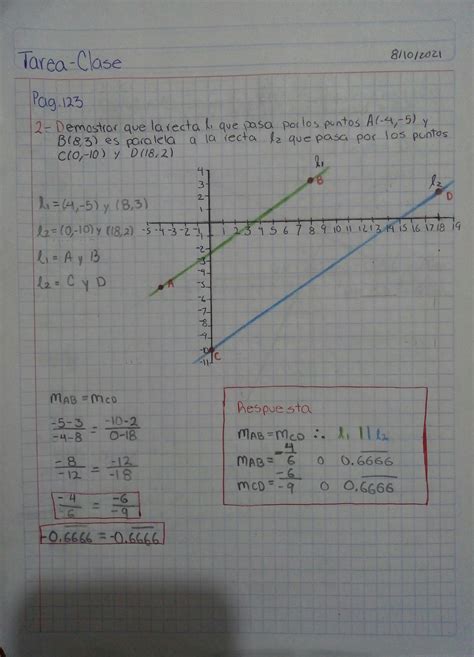 Tarea-Clase
8/10/2021
Pag.123
2- Demostrar que la recta l₁ que pasa por los puntos A(-4,-5) y
B(8,3) es paralela a la recta l₂ que pasa por los puntos
C(0,-10) y D(18,2)
l₁=(-4,-5) y (8,3)
l₂=(0,-10) y (18,2)
l₁= A y B
l₂= C y D
l₁
B
l₂
D
A
C
4
3
2
1
-5 -4 -3 -2 -1 1 2 3 4 5 6 7 8 9 10 11 12 13 14 15 16 17 18 19
-1
-2
-3
-4
-5
-6
-7
-8
-9
-10
-11
mAB = mCD
-5-3/-4-8 = -10-2/0-18
-8/-12 = -12/-18
-4/6 = -6/-9
-0.6666 = -0.6666
Respuesta
mAB=mCD ∴ l₁ || l₂
mAB= -4/6 o 0.6666
mCD= -6/-9 o 0.6666